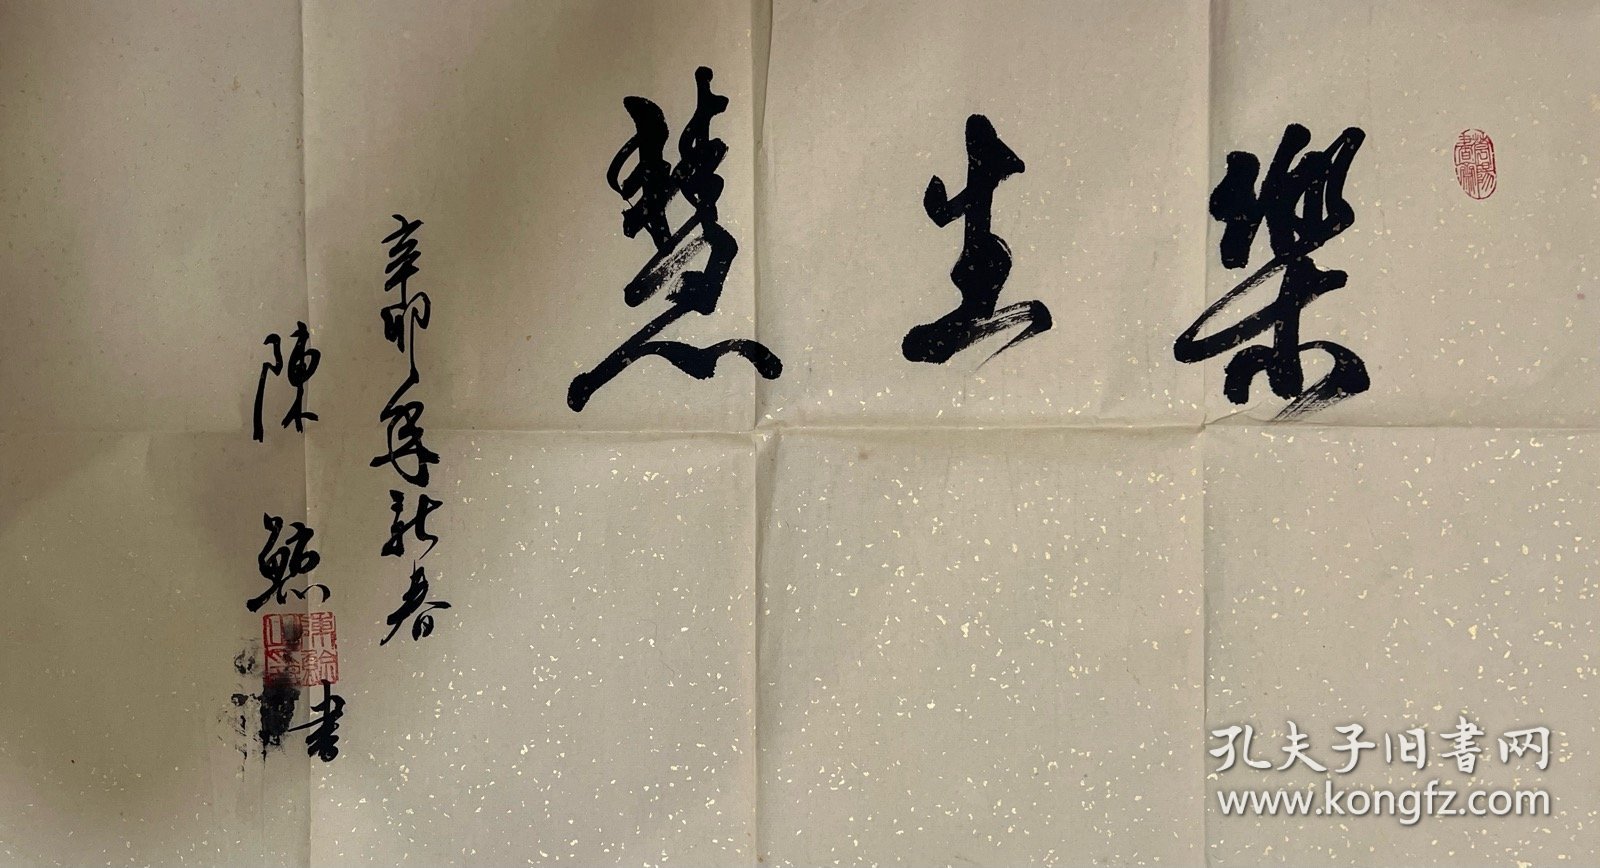 樂生慧
辛卯年新春
陳
書
孔夫子旧書网
www.kongfz.com